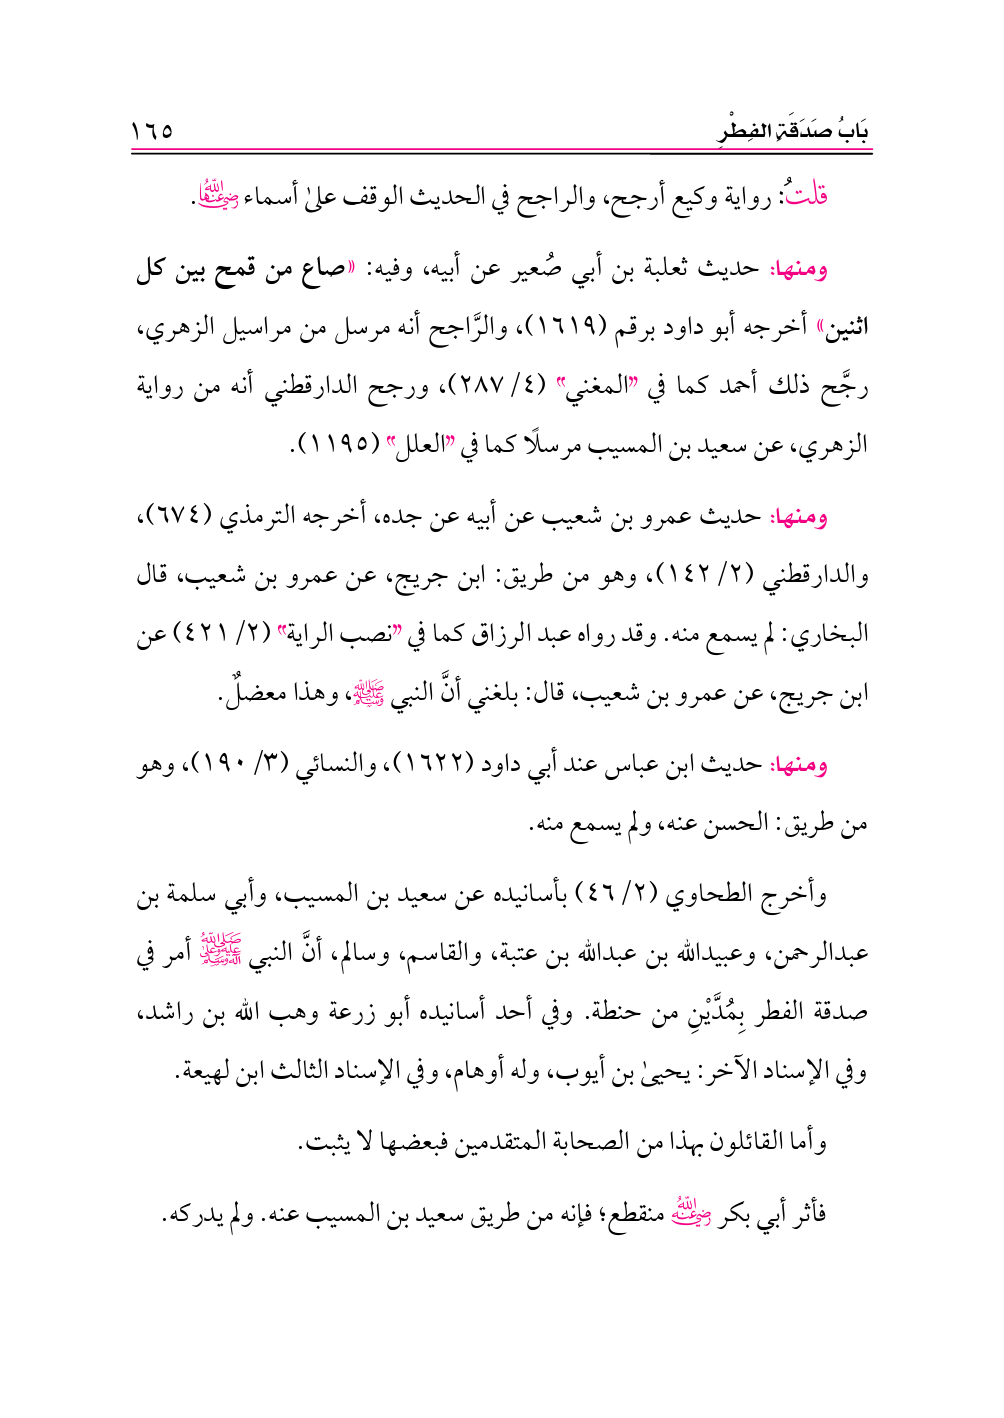 بَابُ صَدَقَةِ الفِطْرِ ١٦٥
قلتُ: رواية وكيع أرجح، والراجح في الحديث الوقف علىٰ أسماء رضي الله عنها.
ومنها: حديث ثعلبة بن أبي صُعير عن أبيه، وفيه: «صاع من قمح بين كل
اثنين» أخرجه أبو داود برقم (١٦١٩)، والرَّاجح أنه مرسل من مراسيل الزهري،
رجَّح ذلك أحمد كما في "المغني" (٤/ ٢٨٧)، ورجح الدارقطني أنه من رواية
الزهري، عن سعيد بن المسيب مرسلًا كما في "العلل" (١١٩٥).
ومنها: حديث عمرو بن شعيب عن أبيه عن جده، أخرجه الترمذي (٦٧٤)،
والدارقطني (٢/ ١٤٢)، وهو من طريق: ابن جريج، عن عمرو بن شعيب، قال
البخاري: لم يسمع منه. وقد رواه عبد الرزاق كما في "نصب الراية" (٢/ ٤٢١) عن
ابن جريج، عن عمرو بن شعيب، قال: بلغني أنَّ النبي ﷺ، وهذا معضلٌ.
ومنها: حديث ابن عباس عند أبي داود (١٦٢٢)، والنسائي (٣/ ١٩٠)، وهو
من طريق: الحسن عنه، ولم يسمع منه.
وأخرج الطحاوي (٢/ ٤٦) بأسانيده عن سعيد بن المسيب، وأبي سلمة بن
عبدالرحمن، وعبيدالله بن عبدالله بن عتبة، والقاسم، وسالم، أنَّ النبي صلى الله عليه وعلى آله وسلم أمر في
صدقة الفطر بِمُدَّيْنِ من حنطة. وفي أحد أسانيده أبو زرعة وهب الله بن راشد،
وفي الإسناد الآخر: يحيىٰ بن أيوب، وله أوهام، وفي الإسناد الثالث ابن لهيعة.
وأما القائلون بهذا من الصحابة المتقدمين فبعضها لا يثبت.
فأثر أبي بكر رضي الله عنه منقطع؛ فإنه من طريق سعيد بن المسيب عنه. ولم يدركه.